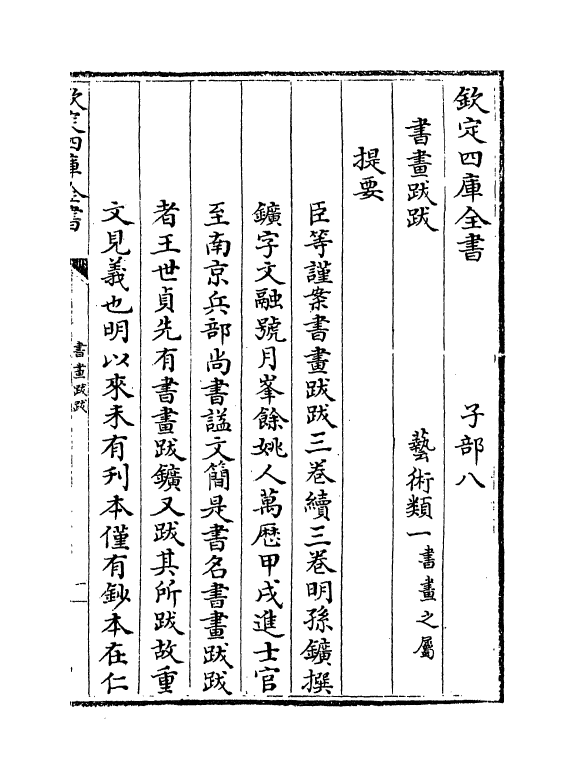 欽定四庫全書 子部八
書畫跋跋 藝術類一書畫之屬
提要
臣等謹案書畫跋跋三卷續三卷明孫鑛撰
鑛字文融號月峯餘姚人萬厯甲戌進士官
至南京兵部尚書諡文簡是書名書畫跋跋
者王世貞先有書畫跋鑛又跋其所跋故重
文見義也明以來未有刊本僅有鈔本在仁
欽定四庫全書
書畫跋跋